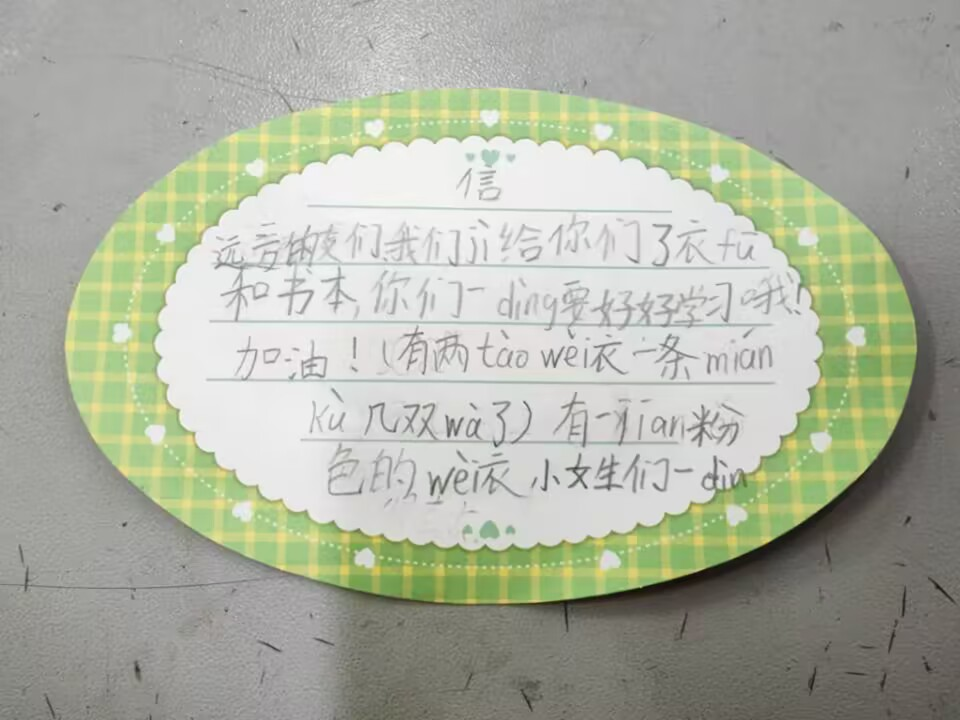 信
远方的友们我们jì给你们了衣fú
和书本,你们一dìng要好好学习哦!
加油!(有两tào wèi衣一条mián
kù几双wà了)有一jiàn粉
色的wèi衣小女生们一din